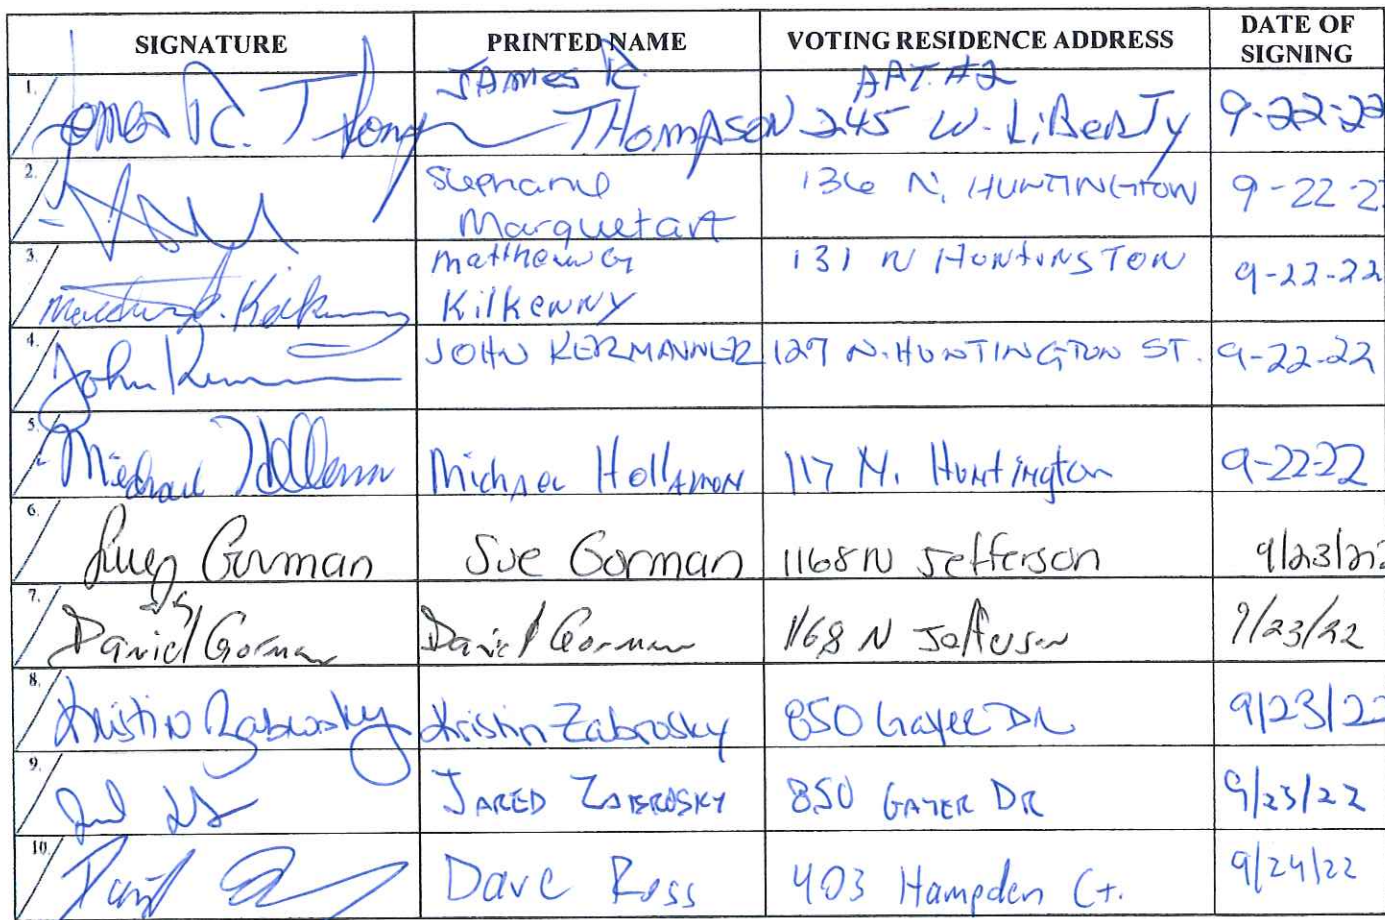 SIGNATURE PRINTED NAME VOTING RESIDENCE ADDRESS DATE OF SIGNING
1. James R. Thompson JAMES R. THOMPSON APT. #2 245 W. LIBERTY 9-22-22
2. Stephanie Marquetart 136 N. HUNTINGTON 9-22-2
3. Matthew G. Kilkenny Matthew G Kilkenny 131 N HUNTINSTON 9-22-22
4. John JOHN KERMANNER 127 N. HUNTINGTON ST. 9-22-22
5. Michael Hollamon Michael Hollamon 117 N. Huntington 9-22-22
6. Gorman Sue Gorman 1168 N Jefferson 9/23/22
7. David Gorman David Gorman 1168 N Jefferson 9/23/22
8. Kristin Zabrosky Kristin Zabrosky 850 Gayer DR 9/23/22
9. JARED ZABROSKY 850 GAYER DR 9/23/22
10. Dave Ross 403 Hampden Ct. 9/24/22